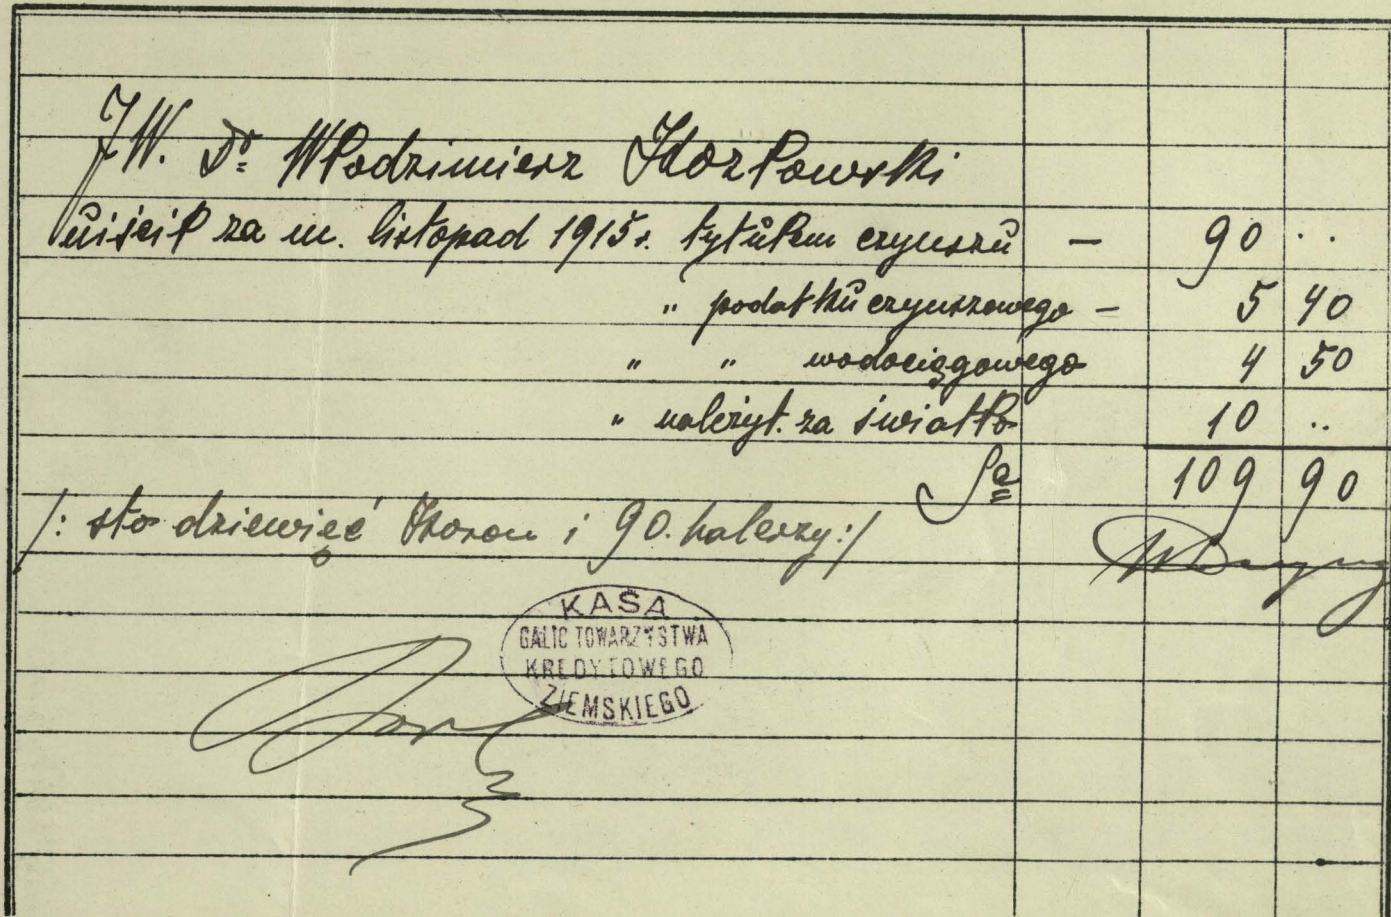 JW. Dr Włodzimierz Kozłowski
uiścił za m. listopad 1915 r. tytułem czynszu – 90 ..
" podatku czynszowego – 5 40
" " wodociągowego 4 50
" należyt. za światło 10 ..
Sa 109 90
/: sto dziewięć koron i 90. halerzy:/
KASA
GALIC TOWARZYSTWA
KREDYTOWEGO
ZIEMSKIEGO